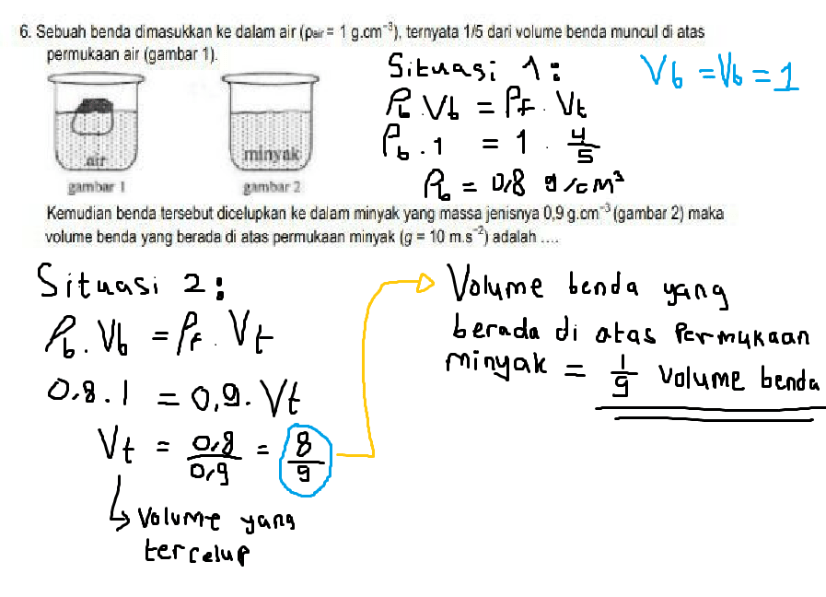 6. Sebuah benda dimasukkan ke dalam air (ρair = 1 g.cm⁻³), ternyata 1/5 dari volume benda muncul di atas
permukaan air (gambar 1).
air
gambar 1
minyak
gambar 2
Situasi 1 :
ρb . Vb = ρF . Vt
ρb . 1 = 1 . 4/5
ρb = 0,8 g/cm³
Vb = Vb = 1
Kemudian benda tersebut dicelupkan ke dalam minyak yang massa jenisnya 0,9 g.cm⁻³ (gambar 2) maka
volume benda yang berada di atas permukaan minyak (g = 10 m.s⁻²) adalah ....
Situasi 2 :
ρb . Vb = ρF . Vt
0,8 . 1 = 0,9 . Vt
Vt = 0,8/0,9 = 8/9
Volume yang
tercelup
Volume benda yang
berada di atas Permukaan
minyak = 1/9 Volume benda